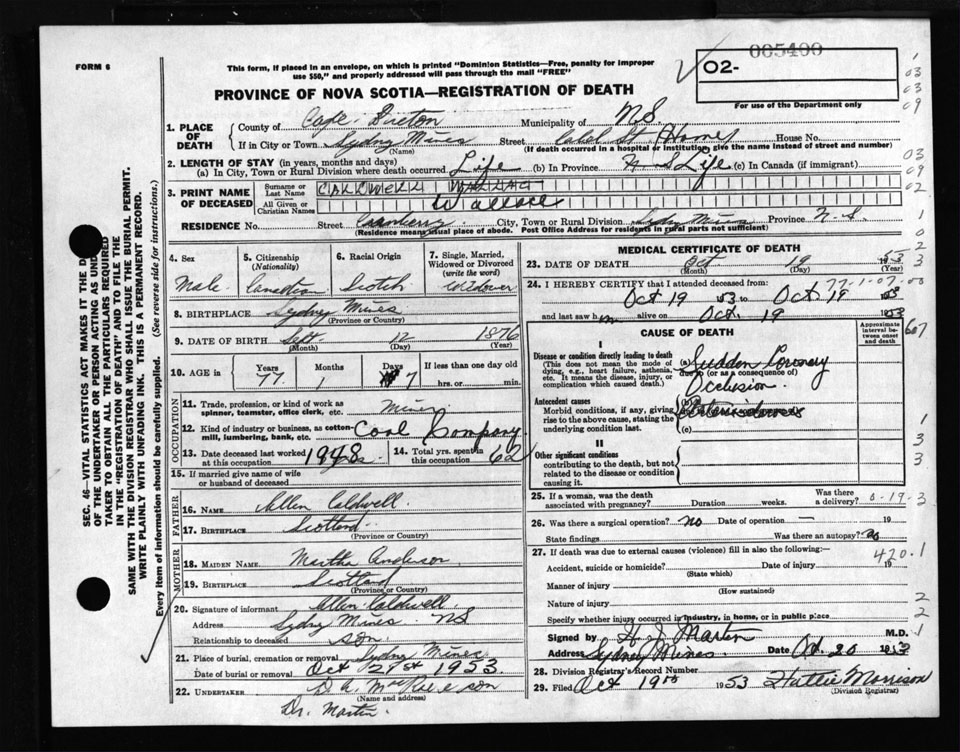 005400
FORM 6
This form, if placed in an envelope, on which is printed "Dominion Statistics—Free, penalty for improper
use $50," and properly addressed will pass through the mail "FREE"
O2-
For use of the Department only
PROVINCE OF NOVA SCOTIA—REGISTRATION OF DEATH
1. PLACE OF DEATH
County of Cape Breton Municipality of N.S
If in City or Town Sydney Mines Street (Home) House No.
(Name) (If death occurred in a hospital or institution, give the name instead of street and number)
2. LENGTH OF STAY (in years, months and days)
(a) In City, Town or Rural Division where death occurred Life (b) In Province N S Life (c) In Canada (if immigrant)
3. PRINT NAME OF DECEASED
Surname or Last Name CALDWELL WALLACE
All Given or Christian Names Wallace
RESIDENCE No. Street Cranberry City, Town or Rural Division Sydney Mines Province N.S.
(Residence means usual place of abode. Post Office Address for residents in rural parts not sufficient)
4. Sex Male
5. Citizenship (Nationality) Canadian
6. Racial Origin Scotch
7. Single, Married, Widowed or Divorced (write the word) Widower
8. BIRTHPLACE Sydney Mines
(Province or Country)
9. DATE OF BIRTH Sept 12 1876
(Month) (Day) (Year)
10. AGE in Years 77 Months 1 Days 7 If less than one day hrs. or min.
OCCUPATION
11. Trade, profession, or kind of work as
spinner, teamster, office clerk, etc. Miner
12. Kind of industry or business, as cotton-
mill, lumbering, bank, etc. Coal Company
13. Date deceased last worked at this occupation 1948
14. Total yrs. spent in this occupation 62
15. If married give name of wife
or husband of deceased
FATHER
16. NAME Allen Caldwell
17. BIRTHPLACE Scotland
(Province or Country)
MOTHER
18. MAIDEN NAME Martha Anderson
19. BIRTHPLACE Scotland
(Province or Country)
20. Signature of informant Allen Caldwell
Address Sydney Mines NS
Relationship to deceased son
21. Place of burial, cremation or removal Sydney Mines
Date of burial or removal Oct 21st 1953
22. UNDERTAKER D. A. & son
(Name and address)
Dr. Martin
MEDICAL CERTIFICATE OF DEATH
23. DATE OF DEATH Oct 19 1953
(Month) (Day) (Year)
24. I HEREBY CERTIFY that I attended deceased from:
77-1-07-00
Oct 19 1953 to Oct 19 1953
and last saw him alive on Oct. 19 1953
CAUSE OF DEATH
Approximate interval between onset and death
I
Disease or condition directly leading to death
(This does not mean the mode of
dying, e.g., heart failure, asthenia,
etc. It means the disease, injury, or
complication which caused death.)
(a) Sudden Coronary
due to (or as a consequence of)
Occlusion
Antecedent causes
Morbid conditions, if any, giving
rise to the above cause, stating the
underlying condition last.
(b) Arteriosclerosis
(c)
II
Other significant conditions
contributing to the death, but not
related to the disease or condition
causing it.
25. If a woman, was the death associated with pregnancy? Duration weeks. Was there a delivery?
0-19-3
26. Was there a surgical operation? no Date of operation — 19
State findings Was there an autopsy? no
27. If death was due to external causes (violence) fill in also the following:—
420.1
Accident, suicide or homicide? Date of injury 19
(State which)
Manner of injury
(How sustained)
Nature of injury
Specify whether injury occurred in industry, in home, or in public place
Signed by Martin M.D.
Address Sydney Mines Date Oct. 20 1953
28. Division Registrar's Record Number
29. Filed Oct 19th 1953 Hattie Morrison
(Division Registrar)
SEC. 46—VITAL STATISTICS ACT MAKES IT THE
OF THE UNDERTAKER OR PERSON ACTING AS
TAKER TO OBTAIN ALL THE PARTICULARS REQUIRED
IN THE "REGISTRATION OF DEATH" AND TO FILE THE
SAME WITH THE DIVISION REGISTRAR WHO SHALL ISSUE THE BURIAL PERMIT.
WRITE PLAINLY WITH UNFADING INK. THIS IS A PERMANENT RECORD.
Every item of information should be carefully supplied. (See reverse side for instructions.)
03
03
09
03
09
02
1
0
2
3
607
1
3
3
2
2
1